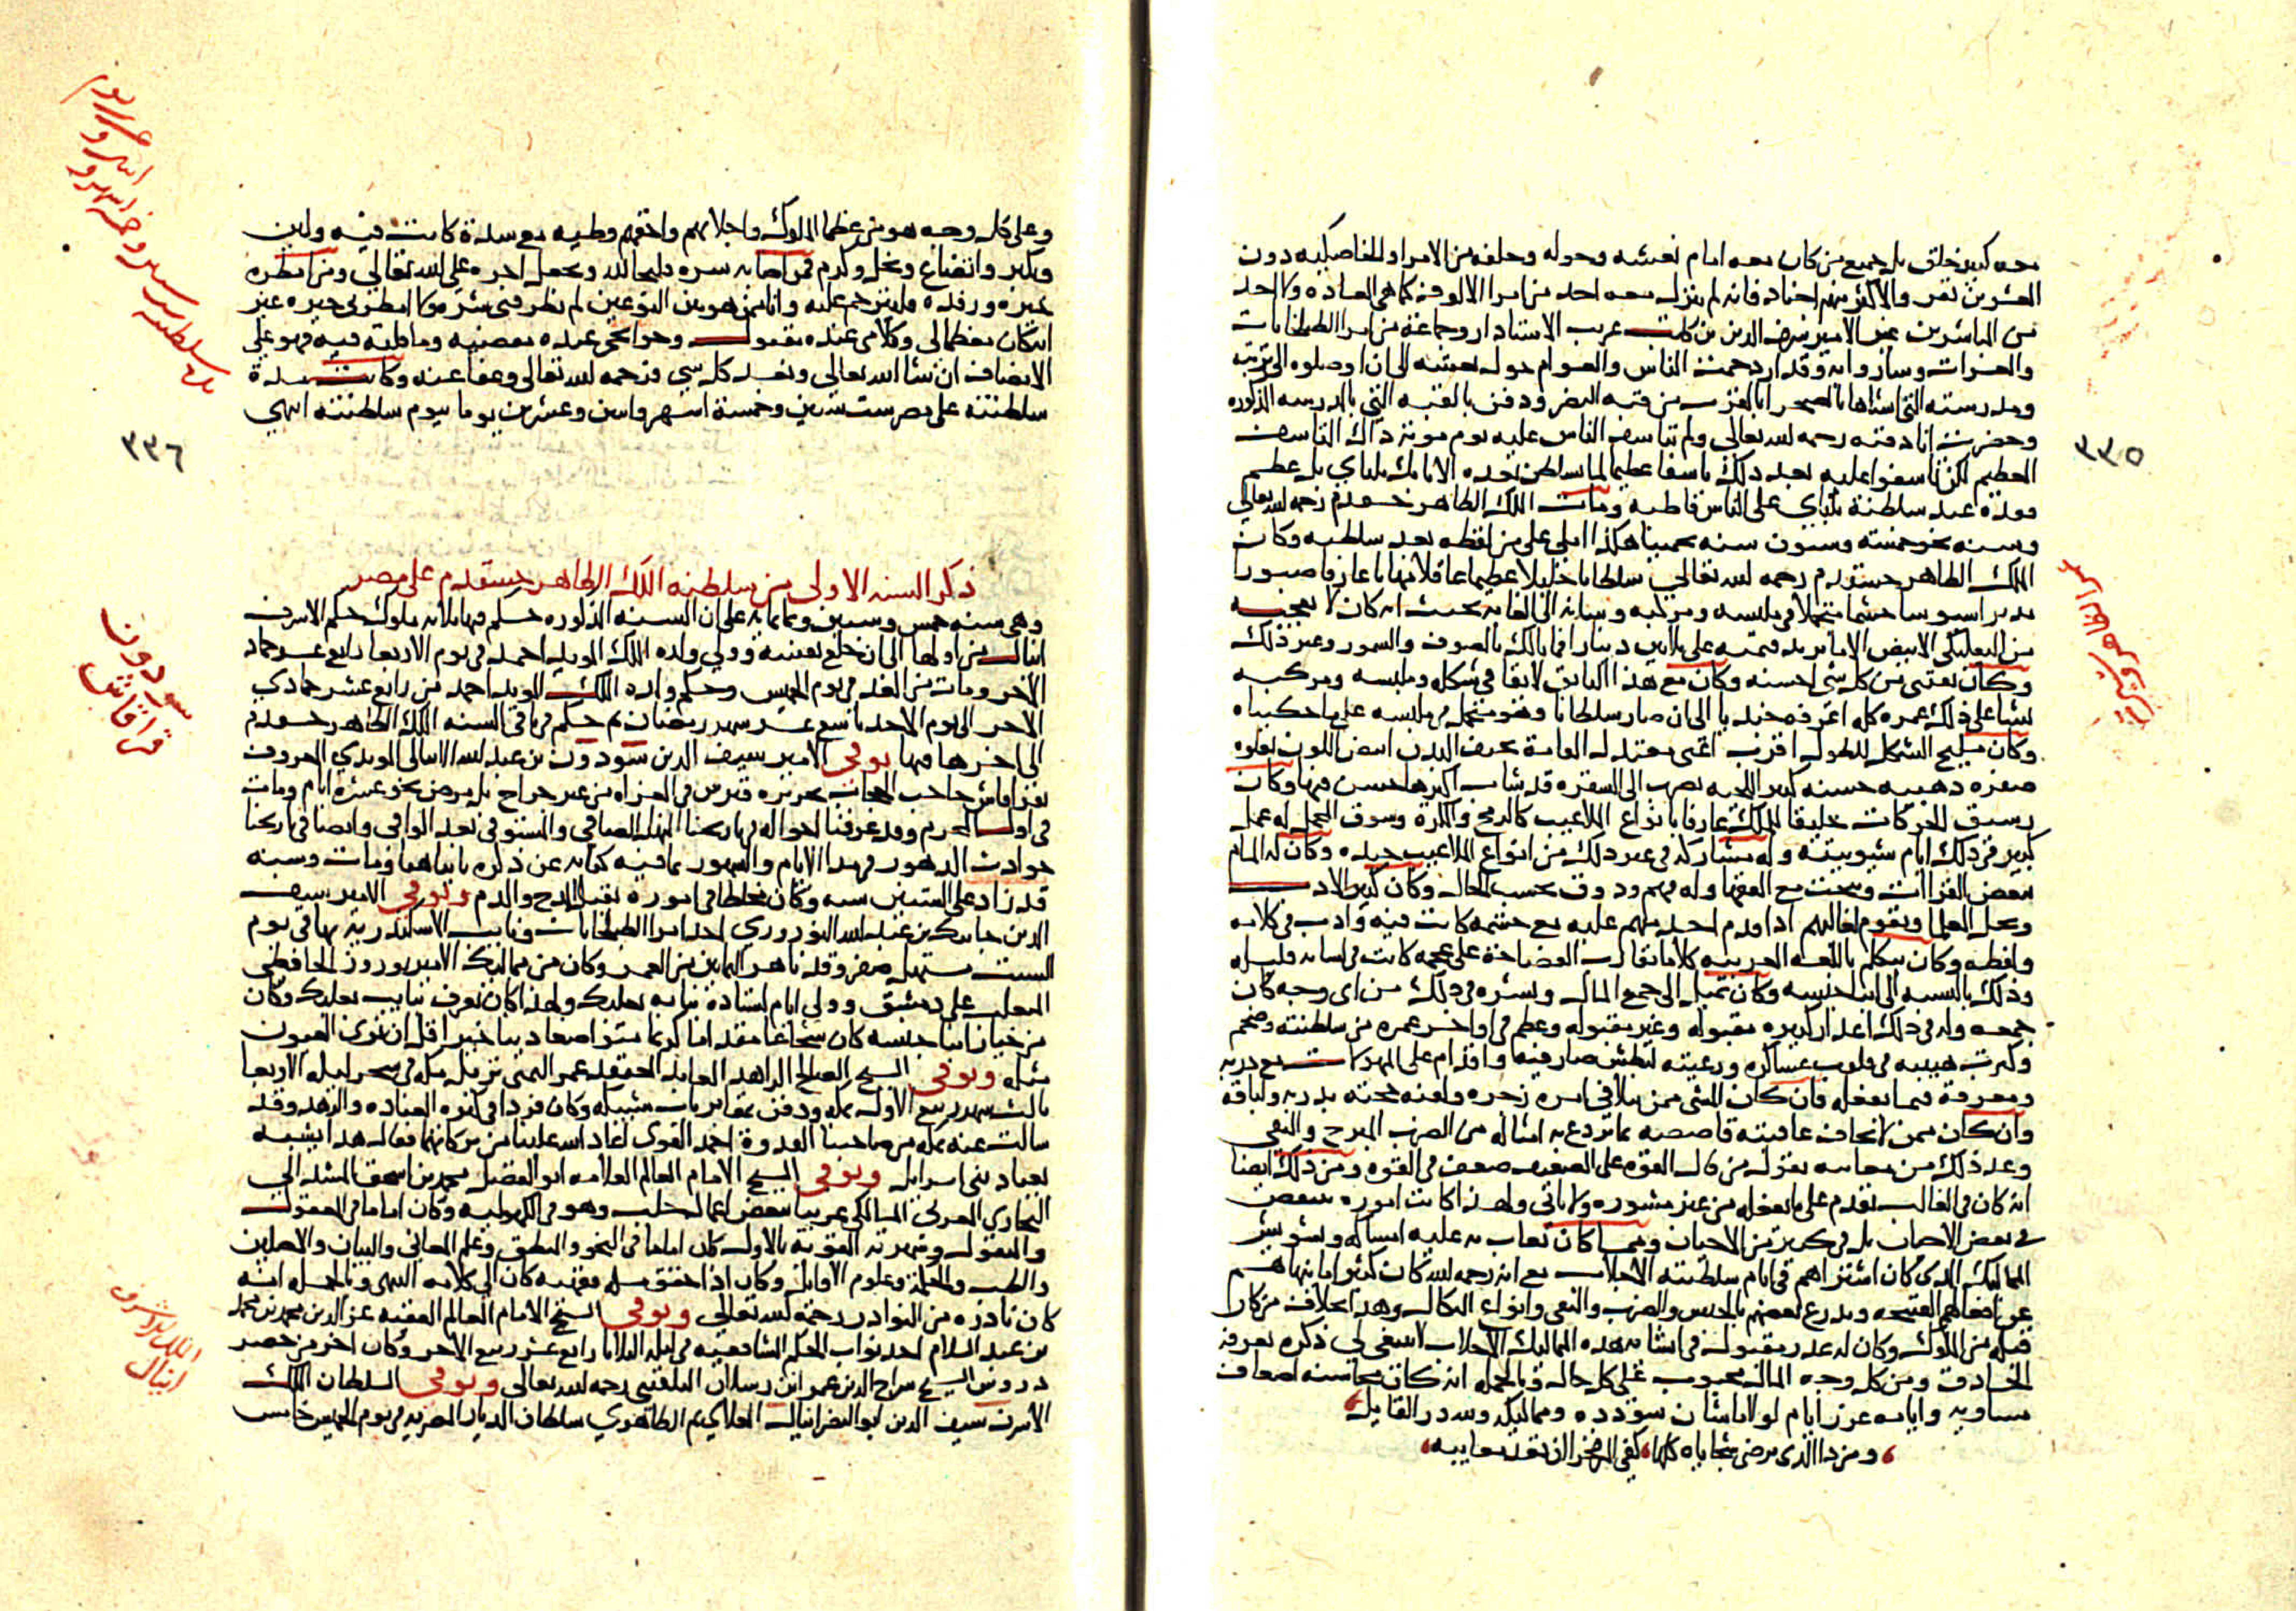 معه كبير خلق بل جميع من كان معه امام نعشه وحوله وخلفه من الامرا والخاصكيه دون
العشرين نفر والاكثر منهم اجناد فانه لم ينزل معه احد من امرا الالوف كما هى العاده ولا احد
من المباشرين غير الامير شرف الدين بن كاتب غريب الاستادار وجماعة من امرا الطبلخانات
والعشرات وساروا به وقد ازدحمت الناس والعوام حول نعشه الى ان اوصلوه الى تربته
ومدرسته التى انشاها بالصحرا بالقرب من قبه النصر ودفن بالقبه التي بالمدرسه المذكوره
وحضرت انا دفنه رحمه الله تعالى ولم تتاسف الناس عليه يوم موته ذاك التاسف
العظيم لكن تاسفوا عليه بعد ذلك تاسفا عظيما لما تسلطن بعده الاتابك يلباي بل عظم
فقده عند سلطنة يلباي على الناس قاطبه ومات الملك الظاهر خشقدم رحمه الله تعالى
وسنه نحو خمسة وستون سنه تخمينا هكذا املى على من لفظه بعد سلطنته وكان
الملك الظاهر خشقدم رحمه الله تعالى سلطانا جليلا عظيما عاقلا مهابا عارفا صبورا
مدبرا سيوسا حشما متجملا في ملبسه ومركبه وسانه الى الغايه بحيث انه كان لا يعجبه
من البعلبكي الابيض الا ما تزيد قيمته على ثلاثين دينارا فما بالك بالصوف والسمور وغير ذلك
وكان يقتني من كل شى احسنه وكان مع هذا التانق لائقا في شكله وملبسه ومركبه
نشا على ذلك عمره كله اعرفه جنديا الى ان صار سلطانا وهو متجمل في ملبسه على ما حكيناه
وكان مليح الشكل للطول اقرب اعنى معتدل القامة نحيف البدن ابيض اللون تعلوه
صفره ذهبيه حسنه كبير اللحيه تضرب الى الشقره قد شاب اكثرها حسن فيها وكان
رشيق الحركات خليقا للملك عارفا بانواع الملاعيب كالرمح والكره وسوق المحمل له عمل
كبير في ذلك ايام شبوبيته وله مشاركه في غير ذلك من انواع الملاعيب جيده وكان له المام
ببعض القراات وبحث مع الفقها وله فهم وذوق بحسب الحال وكان كثير الادب
ويجل العلما ويقوم لغالبهم اذا قدم احد منهم عليه مع حشمه كانت فيه وادب في كلامه
ولفظه وكان يتكلم باللغه العربيه كلاما يقارب الفصاحة على عجمه كانت في لسانه قليله
وذلك بالنسبه الى ابنا جنسه وكان يميل الى جمع المال ويشره في ذلك من اى وجه كان
جمعه وله في ذلك اعذار كثيره مقبوله وغير مقبوله وعظم في اواخر عمره من سلطنته وضخم
وكبرت هيبته في قلوب عساكره ورعيته لبطش صار فيه واقدام على المهولات مع دربه
ومعرفة فيما يفعله فان كان المسى ممن يتلافى امره زجره ولقنه حجته بدربه ولباقة
وان كان ممن لا يخاف عاقبته قاصصه بما يردع به امثاله من الضرب المبرح والنفى
وعد ذلك من معايبه يقول من قال القوه على الضعيف ضعف في القوه ومن ذلك ايضا
انه كان في الغالب يقدم على ما يفعله من غير مشوره ولا تاني ولهذا كانت اموره تنتقض
في بعض الاحيان بل في كثير من الاحيان ومما كان يعاب به عليه امساكه وتشويش
المماليك الذى كان اشتراهم في ايام سلطنته الاجلاب مع انه رحمه الله كان كثيرا ما ينهاهم
عن افعالهم القبيحه ويردع بعضهم بالحبس والضرب والنفى وانواع النكال وهذا بخلاف من كان
قبله من الملوك وكان له عذر مقبول في انشائه هذه المماليك الاجلاب لا ينبغي لي ذكره يعرفه
الحاذق ومن كل وجه المال محبوب على كل حال وبالجمله انه كانت محاسنه اضعاف
مساويه وايامه غرر ايام لولا ما شان سؤدده ومماليكه ولله در القايل
ومن ذا الذى ترضى سجاياه كلها كفى المرء فخرا ان تعد معايبه
سنه الظاهر وترجمته
٣٣٥
وعلى كل وجه هو من عظما الملوك واجلائهم واخفهم وطيه مع شدة كانت فيه ولين
وتكبر واتضاع وبخل وكرم فمن اصابه بشره دليجا لله ويجعل اجره على الله تعالي ومن امطره
بخيره ورفده فليترحم عليه وانا ممن هو بين النوعين لم يظفرنى بشر ولا امطرنى خيره غير
انه كان معظما لي وكلامى عنده مقبول وحوايجى عنده مقضيه وما قلته فيه فهو على
الانصاف ان شا الله تعالى ونفد كل شي فرحمه الله تعالى وعفا عنه وكانت مدة
سلطنته على مصر ست سنين وخمسة اشهر واثنين وعشرين يوما بيوم سلطنته انتهى
مده سلطنته ست سنين وخمسة اشهر واثنين وعشرين يوم
٣٣٦
ذكر السنه الاولى من سلطنه الملك الظاهر خشقدم على مصر
وهى سنه خمس وستين وثمانمايه على ان السنه المذكوره حكم فيها ثلاثه ملوك حكم الاشرف
اينال من اولها الى ان خلع نفسه وولي ولده الملك المويد احمد في يوم الاربعا رابع عشر جماد
الاخر ومات من الغد في يوم الخميس وحكم ولده الملك المويد احمد من رابع عشر جمادي
الاخر الى يوم الاحد تاسع عشر شهر رمضان ثم حكم في باقى السنه الملك الظاهر خشقدم
الى اخرها فيها توفى الامير سيف الدين سودون بن عبد الله الاينالى المويدي المعروف
بقراقاش حاجب الحجاب بجزيره قبرس في الغزاه من غير جراح بل بمرض نحو عشرة ايام ومات
في اول المحرم وقد عرفنا احواله في تاريخنا المنهل الصافى والمستوفى بعد الوافى وايضا في تاريخنا
حوادث الدهور في مدا الايام والشهور بما فيه كفايه عن ذكره ثانيا هنا ومات وسنه
قد زاد على الستين سنه وكان مخلطا في اموره يقبل المدح والذم وتوفى الامير سيف
الدين جانبك بن عبد الله النوروزي احد امرا الطبلخانات ونايب الاسكندريه بها في يوم
السبت مستهل صفر وقد ناهز الثمانين من العمر وكان من مماليك الامير نوروز الحافظى
المتغلب على دمشق وولي ايام استاذه نيابه بعلبك ولهذا كان يعرف بنايب بعلبك وكان
من خيار ابنا جنسه كان شجاعا مقداما كريما متواضعا دينا خيرا قل ان ترى العيون
مثله وتوفى الشيخ الصالح الزاهد العابد المعتقد عمر اليمنى نزيل مكه في سحر ليله الاربعا
ثالث شهر ربيع الاول بمكه ودفن بمقابر باب شبيكه وكان فردا في كثره العباده والزهد وقد
سالت عنه بمكه من صاحبنا القدوة احمد الفوى اعاد الله علينا من بركاتهما فقال هذا يشبه
بعباد بنى اسرايل وتوفى الشيخ الامام العالم العلامه ابو الفضل محمد بن اسحق المشدالي
البجاوي المغربى المالكى غريبا ببعض اعمال حلب وهو في الكهوليه وكان اماما في المعقول
والمنقول وشهرته القويه بالاول كان اماما في النحو والمنطق وعلم المعانى والبيان والاصلين
والطب والحكمة وعلوم الاوايل وكان اذا حقق مسله فقهيه كان الى كلامه المنتهى وبالجمله انه
كان نادره من النوادر رحمه الله تعالي وتوفى الشيخ الامام العالم الفقيه عز الدين محمد بن محمد
بن عبد السلام احد نواب الحكم الشافعيه في ليله الثلاثا رابع عشر ربيع الاخر وكان اخر من حضر
دروس الشيخ سراج الدين عمر ابن رسلان البلقينى رحمه الله تعالى وتوفى السلطان الملك
الاشرف سيف الدين ابو النصر اينال العلاي ثم الظاهري سلطان الديار المصريه في يوم الخميس خامس
سودون قراقاش
الملك الاشرف اينال